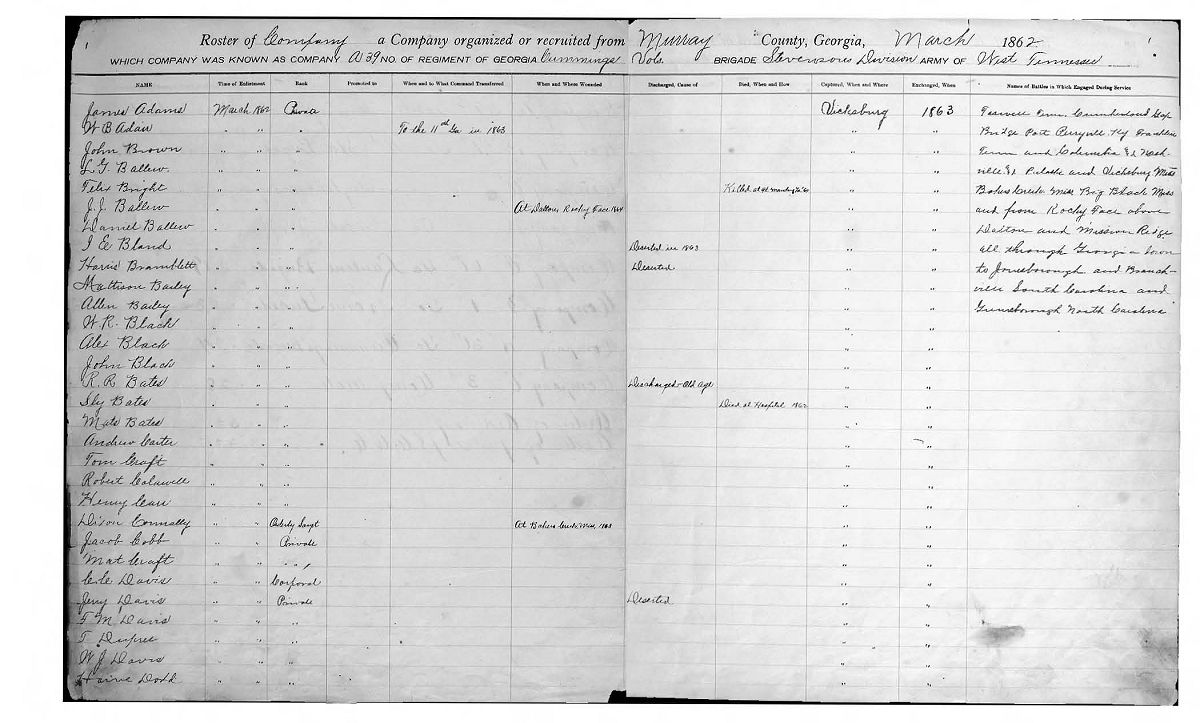 Roster of Company a Company organized or recruited from Murray County, Georgia, March 1862
WHICH COMPANY WAS KNOWN AS COMPANY A 39 NO. OF REGIMENT OF GEORGIA Vols. Cummings BRIGADE Stevensons Division ARMY OF West Tennessee
NAME Time of Enlistment Rank Promoted to When and to What Command Transferred When and Where Wounded Discharged, Cause of Died, When and How Captured, When and Where Exchanged, When Names of Battles in Which Engaged During Service
James Adams March 1862 Private Vicksburg 1863 Tenn. Cumberland Gap
W B Adair " " " To the 11th Ga in 1863 " " Bridge Port Ky Franklin
John Brown " " " " " Tenn and Columbia & Nash-
L. G. Ballew " " " " " ville & Pulaski and Vicksburg Miss
Felix Bright " " " Killed at " " Bakers Creek Miss Big Black Miss
J. J. Ballew " " " At Dalton Rocky Face 1864 " " and from Rocky Face above
Daniel Ballew " " " " " Dalton and Mission Ridge
I E Bland " " " Deserted in 1863 " " all through Georgia down
Harris Bramblett " " " Deserted " " to Jonesborough and Branch-
Mattison Bailey " " " " " ville South Carolina and
Allen Bailey " " " " " Greensborough North Carolina
W. R. Black " " " " "
Alex Black " " " " "
John Black " " " " "
R. R Bates " " " Discharged-Old Age " "
Sly Bates " " " Died at Hospital 1862 " "
Mat Bates " " " " "
Andrew Carter " " " " "
Tom Craft " " " " "
Robert Colwell " " " " "
Henry Carr " " " " "
Dison Connally " " Orderly Sergt At Bakers Creek Miss, 1863 " "
Jacob Cobb " " Private " "
Mat Craft " " " " " "
Davis " " Corporal " "
Jerry Davis " " Private Deserted " "
F M Davis " " " " "
T Dupree " " " " "
W J Davis " " " " "
Dodd " " " " "